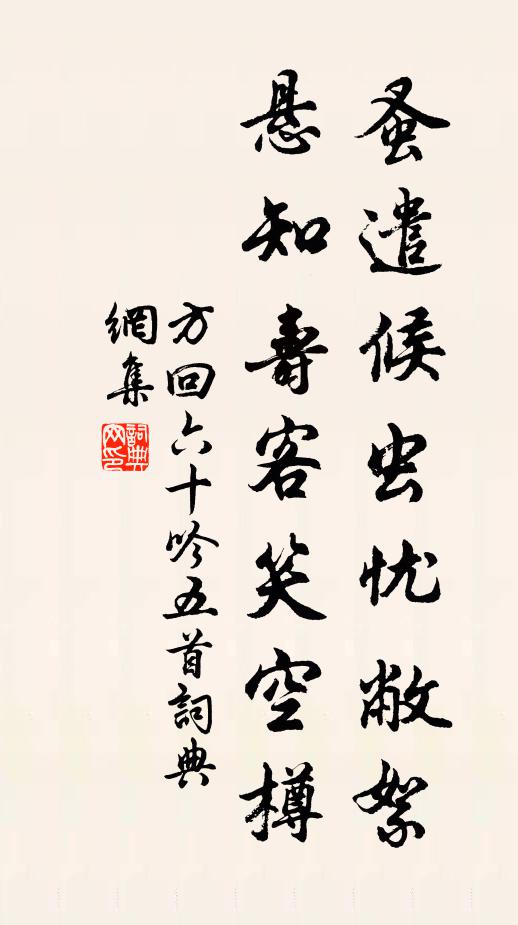 蚤遣候虫忧敝絮
悬知寿客笑空樽
方回六十吟五首詞典
網集
詞典網印